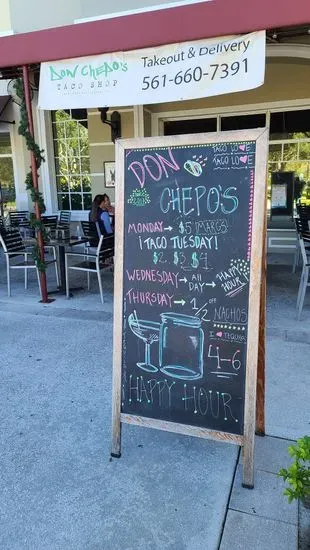 DON CHEPO'S
TACO SHOP
TAKEOUT & DELIVERY
561-660-7391
TACO LOVE
TACO LOVE
DON
CHEPO'S
MONDAY → $5 MARGS
¡TACO TUESDAY!
$2 $3 $4
WEDNESDAY → ALL DAY → HAPPY HOUR
THURSDAY → 1/2 OFF
NACHOS
I ♥ TEQUILA
4-6
HAPPY HOUR